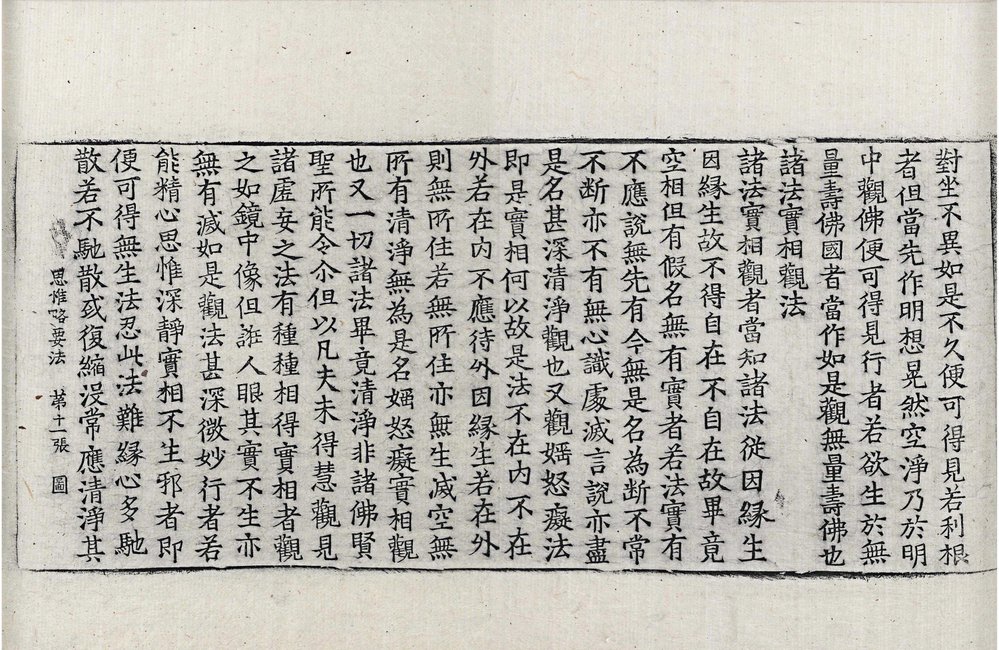 對坐不異如是不久便可得見若利根
者但當先作明想晃然空淨乃於明
中觀佛便可得見行者若欲生於無
量壽佛國者當作如是觀無量壽佛也
諸法實相觀法
諸法實相觀者當知諸法從因緣生
因緣生故不得自在不自在故畢竟
空相但有假名無有實者若法實有
不應說無先有今無是名為斷不常
不斷亦不有無心識處滅言說亦盡
是名甚深清淨觀也又觀婬怒癡法
即是實相何以故是法不在內不在
外若在內不應待外因緣生若在外
則無所住若無所住亦無生滅空無
所有清淨無為是名婬怒癡實相觀
也又一切諸法畢竟清淨非諸佛賢
聖所能令尒但以凡夫未得慧觀見
諸虛妄之法有種種相得實相者觀
之如鏡中像但誑人眼其實不生亦
無有滅如是觀法甚深微妙行者若
能精心思惟深靜實相不生邪者即
便可得無生法忍此法難緣心多馳
散若不馳散或復縮沒常應清淨其
思惟略要法 第十一張 圖